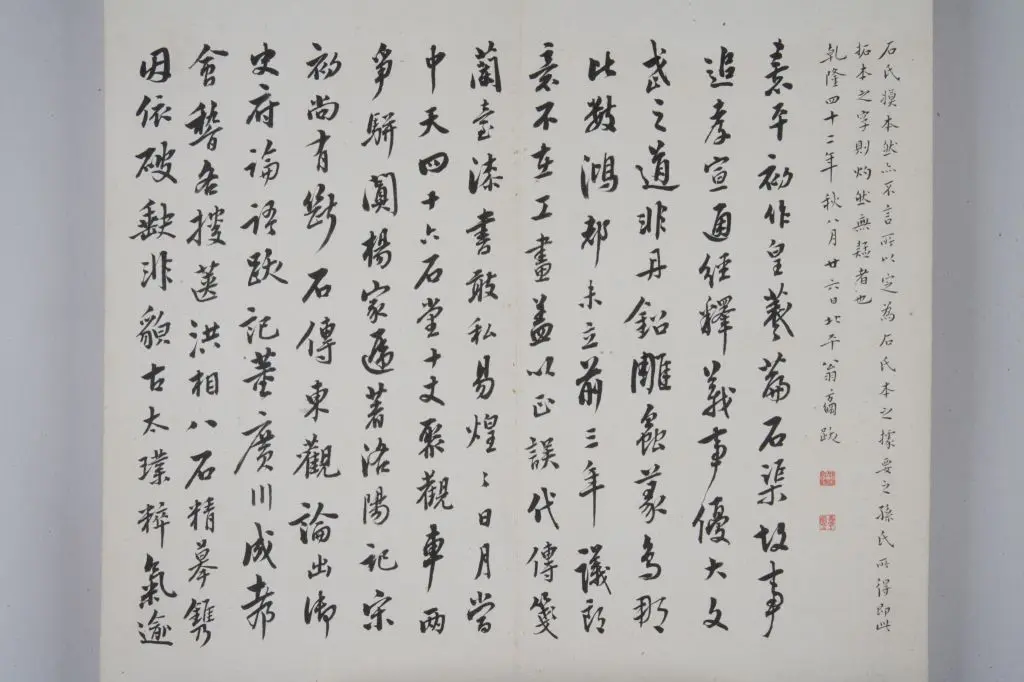 石氏摸本然亦不言所以定為石氏本之據要之孫氏所得即此
拓本之字則灼然無疑者也
乾隆四十二年秋八月廿六日北平翁方綱跋
熹平初作皇羲篇石渠故事
追孝宣通經釋義事優大文
武之道非丹鉛雕蟲篆鳥那
比數鴻都未立前三年議郎
意不在工畫蓋以正誤代傳箋
蘭臺漆書敢私易煌〻日月當
中天四十六石堂十丈聚觀車兩
爭駢闐楊家遞著洛陽記宋
初尚有斷石傳東觀論出御
史府論語跋記董廣川成都
會稽各搜葺洪相八石精摹鐫
因依破缺非貌古太璞粹氣逾